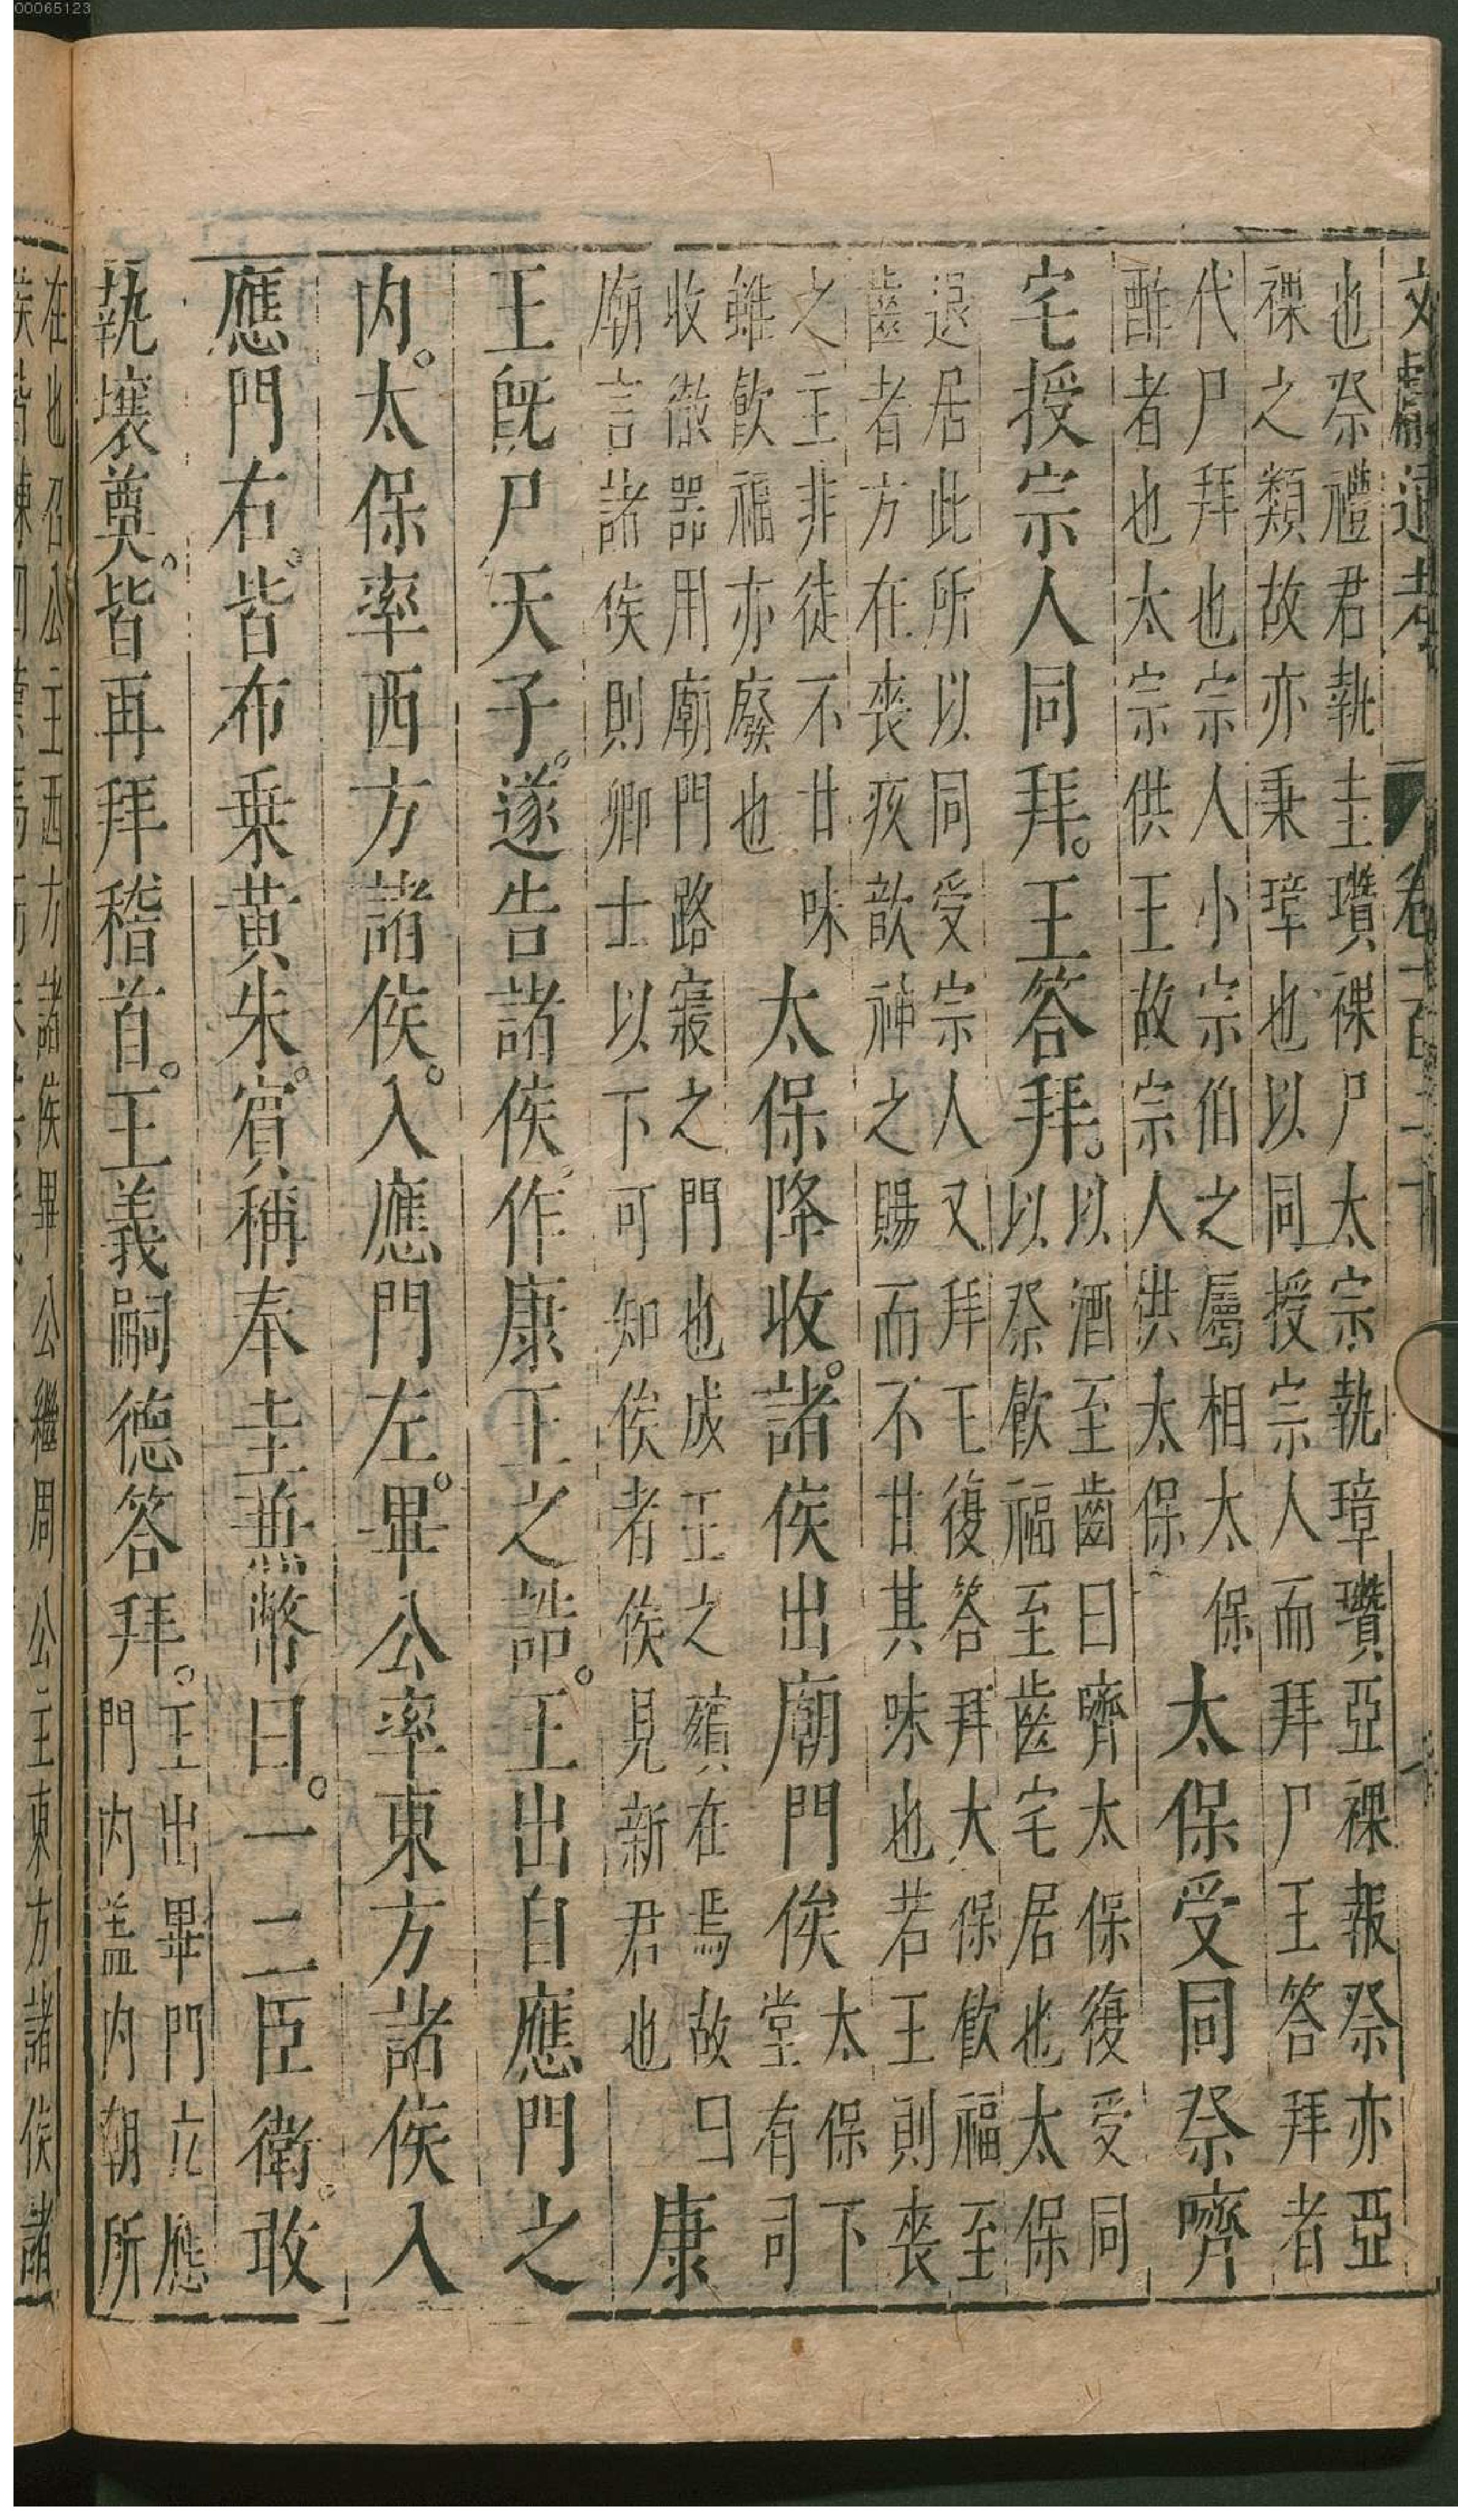 00065123
文獻通考
也祭禮君執圭瓚祼尸太宗執璋瓚亞祼報祭亦亞
祼之類故亦秉璋也以同授宗人而拜尸王答拜者
代尸拜也宗人小宗伯之屬相太保
酢者也太宗供王故宗人供太保
太保受同祭嚌
宅授宗人同拜。王答拜。
以酒至齒曰嚌太保復受同
以祭飲福至齒宅居也太保
退居此所以同受宗人又拜王復答拜大保飲福至
齒者方在喪疚歆神之賜而不甘其味也若王則喪
之主非徒不甘味
雖飲福亦廢也
太保降收。諸侯出廟門俟
太保下
堂有司
收徹器用廟門路寢之門也成王之殯在焉故曰
廟言諸侯則卿士以下可知俟者俟見新君也
康
王旣尸天子。遂告諸侯。作康王之誥。王出自應門之
內。太保率西方諸侯。入應門左。畢公率東方諸侯入
應門右。皆布乗黃朱。賓稱奉圭兼幣曰。一二臣衛。敢
執壤奠。皆再拜稽首。王義嗣德答拜。
王出畢門立應
門內葢內朝所
在也召公主西方諸侯畢公繼周公主東方諸侯諸